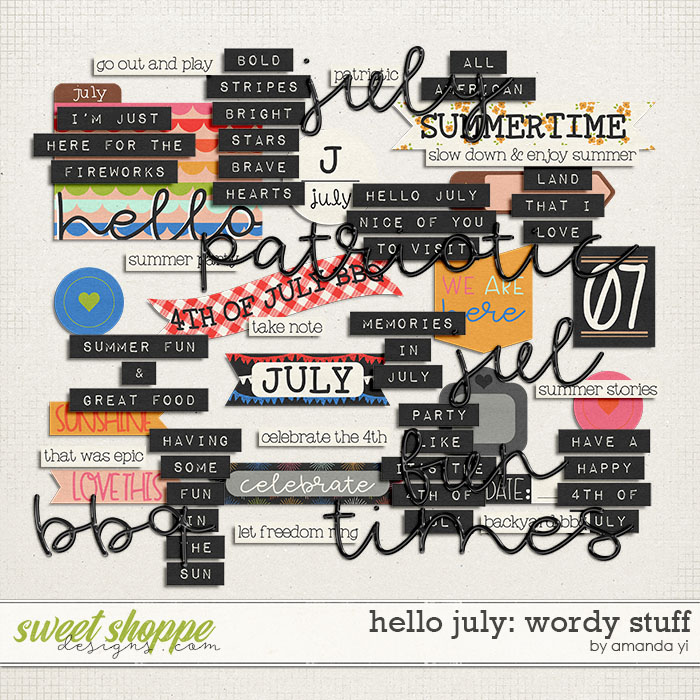 go out and play
BOLD
STRIPES
BRIGHT
STARS
BRAVE
HEARTS
patriotic
july
ALL
AMERICAN
july
I'M JUST
HERE FOR THE
FIREWORKS
hello
SUMMERTIME
slow down & enjoy summer
J
july
HELLO JULY
NICE OF YOU
TO VISIT
LAND
THAT I
LOVE
patriotic
summer party
4TH OF JULY BBQ
take note
WE ARE
here
07
MEMORIES
IN
JULY
jul
SUMMER FUN
&
GREAT FOOD
JULY
summer stories
SUNSHINE
that was epic
LOVE THIS
HAVING
SOME
FUN
IN
THE
SUN
celebrate the 4th
celebrate
let freedom ring
PARTY
LIKE
IT'S THE
4TH OF
JULY
fun
DATE:
backyard bbq
HAVE A
HAPPY
4TH OF
JULY
bbq
times
sweet shoppe
designs.com
hello july: wordy stuff
by amanda yi